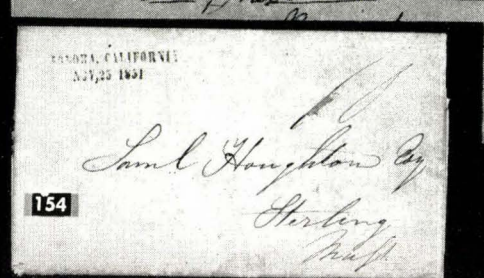 SONORA, CALIFORNIA
NOV, 25 1851
10
Saml Houghton Esq
Sterling
Mass
154